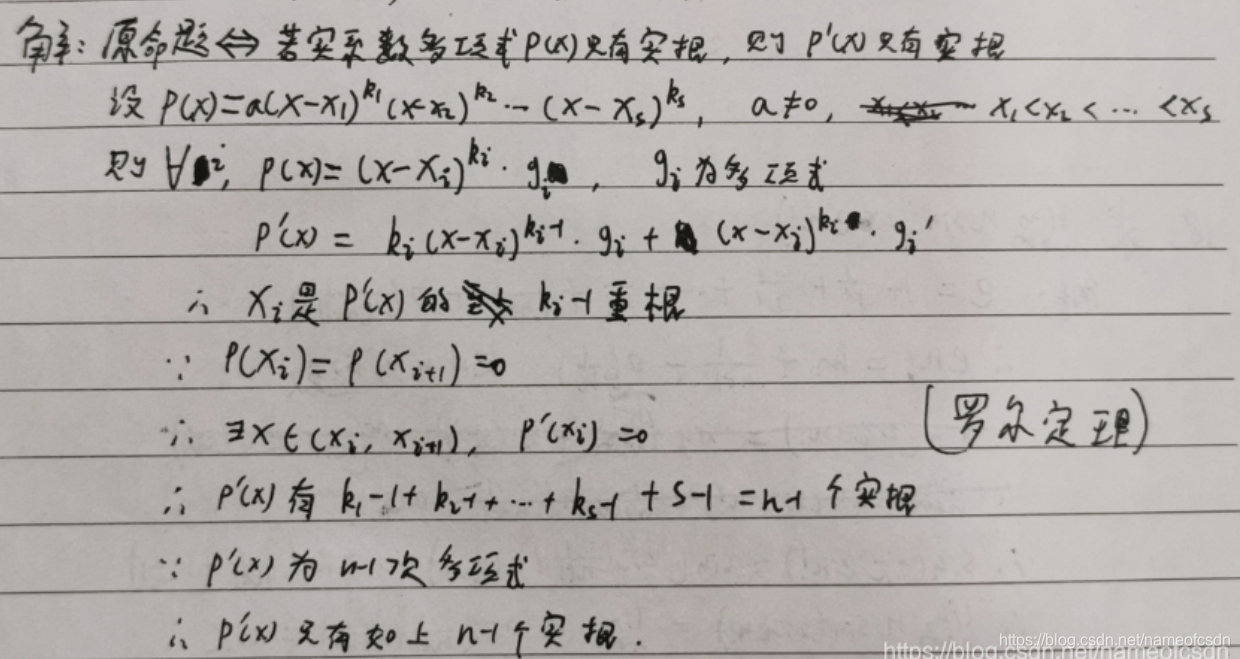 解：原命题⇔若实系数多项式P(x)只有实根，则P'(x)只有实根
设P(x)=a(x-x₁)^k₁(x-x₂)^k₂…(x-xₛ)^kₛ，a≠0，x₁<x₂<…<xₛ
则∀i，P(x)=(x-xᵢ)^kᵢ·gᵢ，gᵢ为多项式
P'(x)=kᵢ(x-xᵢ)^kᵢ-1·gᵢ+(x-xᵢ)^kᵢ·gᵢ'
∴xᵢ是P'(x)的kᵢ-1重根
∵P(xᵢ)=P(xᵢ₊₁)=0
∴∃x∈(xᵢ，xᵢ₊₁)，P'(xᵢ)=0
(罗尔定理)
∴P'(x)有k₁-1+k₂-1+…+kₛ-1+s-1=n-1个实根
∵P'(x)为n-1次多项式
∴P'(x)只有如上n-1个实根.
https://blog.csdn.net/nameofcsdn
https://blog.csdn.net/nameofcsdn